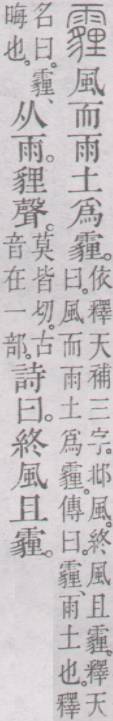 霾風而雨土爲霾。依釋天補三字。邶風。終風且霾。釋天
曰。風而雨土爲霾。傳曰。霾、雨土也。釋
名曰。霾、
晦也。
从雨。貍聲。莫皆切。古
音在一部。
詩曰。終風且霾。